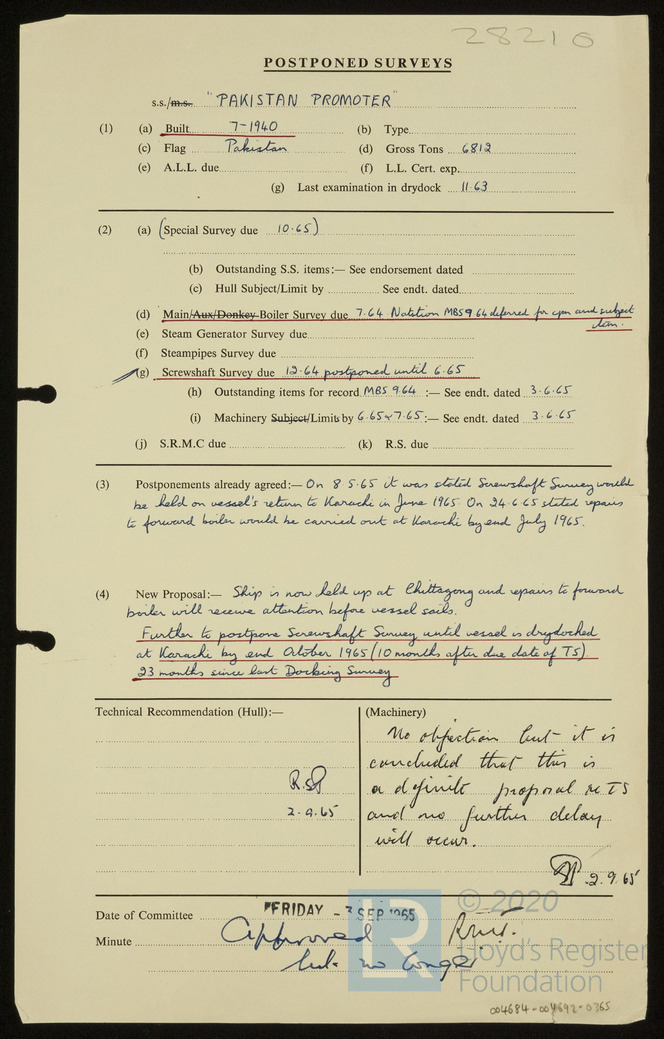 28210
POSTPONED SURVEYS
s.s./m.s. "PAKISTAN PROMOTER"
(1) (a) Built 7-1940 (b) Type
(c) Flag Pakistan (d) Gross Tons 6812
(e) A.L.L. due (f) L.L. Cert. exp.
(g) Last examination in drydock 11.63
(2) (a) (Special Survey due 10.65)
(b) Outstanding S.S. items:— See endorsement dated
(c) Hull Subject/Limit by See endt. dated
(d) Main/Aux/Donkey Boiler Survey due 7.64 Notation MBS 9.64 deferred for cpn and subject
item.
(e) Steam Generator Survey due
(f) Steampipes Survey due
(g) Screwshaft Survey due 12.64 postponed until 6.65
(h) Outstanding items for record MBS 9.64 :— See endt. dated 3.6.65
(i) Machinery Subject/Limits by 6.65 & 7.65 :— See endt. dated 3.6.65
(j) S.R.M.C due (k) R.S. due
(3) Postponements already agreed:— On 8.5.65 it was stated Screwshaft Survey would
be held on vessel's return to Karachi in June 1965. On 24.6.65 stated repairs
to forward boiler would be carried out at Karachi by end July 1965.
(4) New Proposal:— Ship is now held up at Chittagong and repairs to forward
boiler will receive attention before vessel sails.
Further to postpone Screwshaft Survey until vessel is drydocked
at Karachi by end October 1965 (10 months after due date of TS)
23 months since last Docking Survey
Technical Recommendation (Hull):—
2.9.65
(Machinery)
No objection but it is
concluded that this is
a definite proposal re TS
and no further delay
will occur.
2.9.65
Date of Committee FRIDAY - 3 SEP 1965
Minute Approved
but no longer
LR
© 2020
Lloyd's Register
Foundation
004684-004692-0365